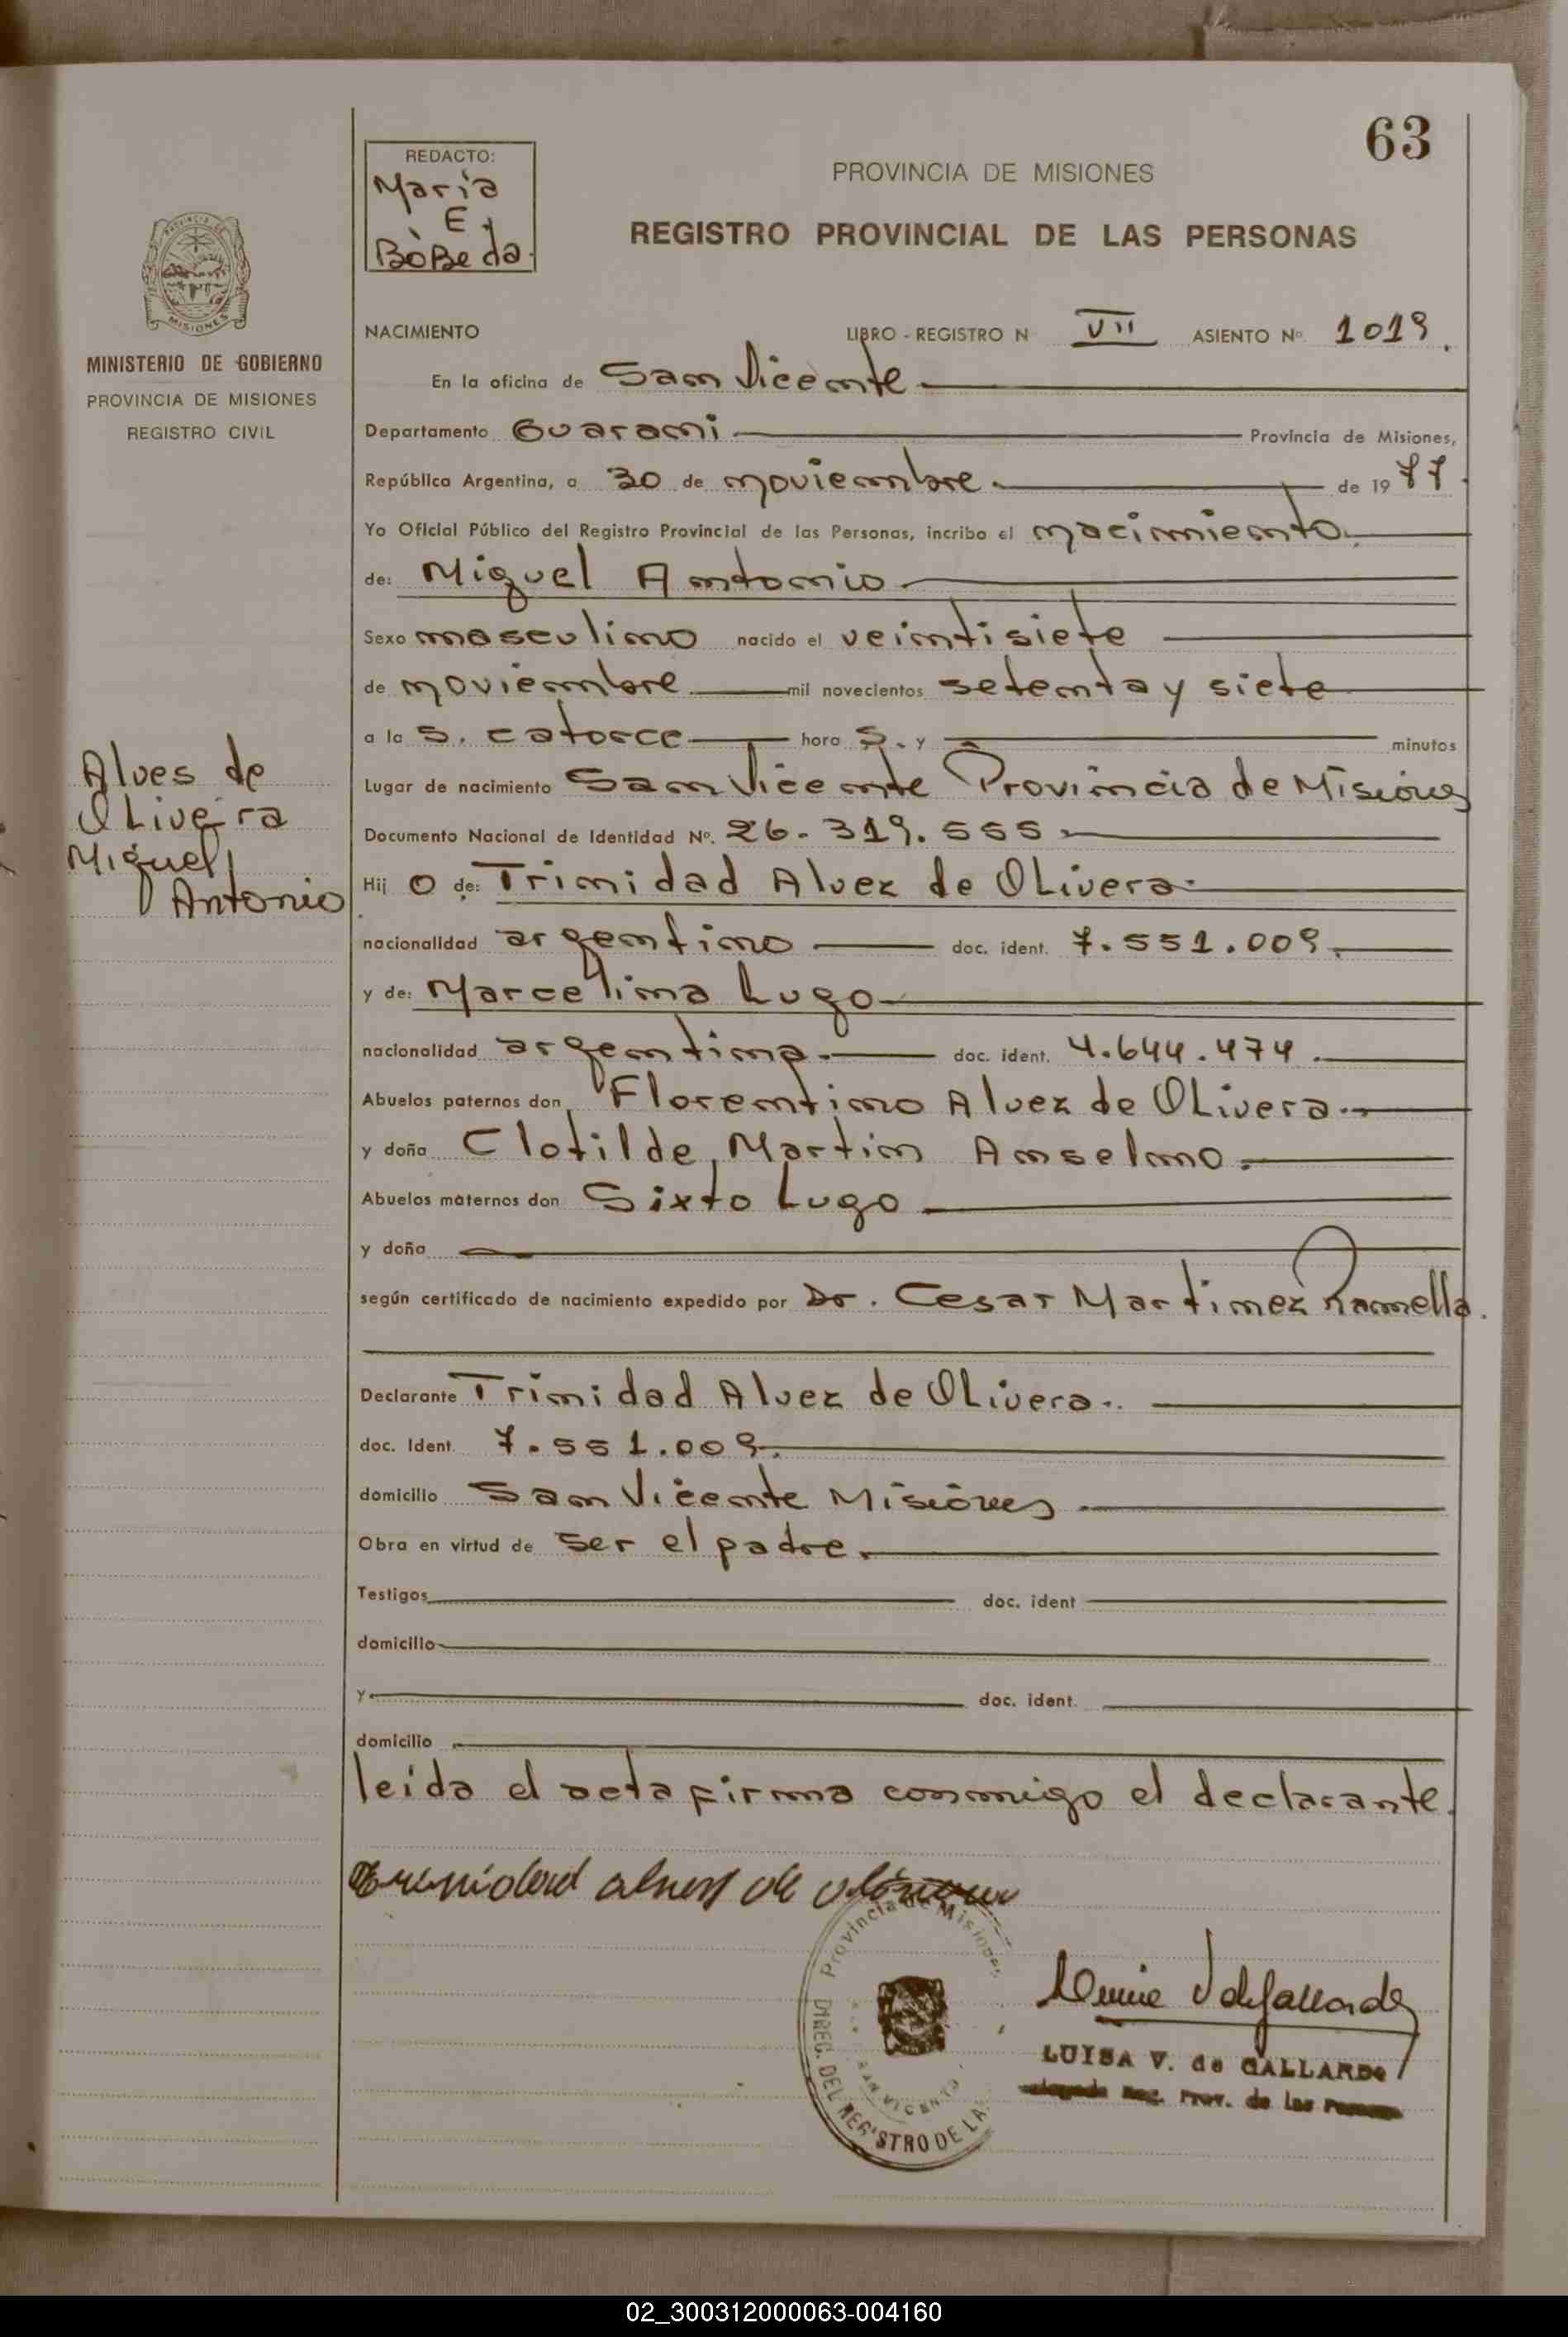 63
REDACTO:
Maria
E.
Bòbeda.
PROVINCIA DE MISIONES
REGISTRO PROVINCIAL DE LAS PERSONAS
MISIONES
MINISTERIO DE GOBIERNO
PROVINCIA DE MISIONES
REGISTRO CIVIL
NACIMIENTO LIBRO - REGISTRO N VII ASIENTO Nº 1019.
En la oficina de San Vicente
Departamento Guarani Provincia de Misiones,
República Argentina, a 30 de noviembre. de 1977.
Yo Oficial Público del Registro Provincial de las Personas, incribo el nacimiento.
de: Miguel Antonio
Sexo masculino nacido el veintisiete
de noviembre mil novecientos setenta y siete
a la s. catorce hora s. y minutos
Lugar de nacimiento San Vicente Provincia de Misiones
Documento Nacional de Identidad Nº. 26.319.555
Alves de
Oliveira
Miguel
Antonio
Hij o de: Trinidad Alvez de Olivera.
nacionalidad argentino doc. ident. 7.551.009.
y de: Marcelina Lugo
nacionalidad argentina. doc. ident. 4.644.474.
Abuelos paternos don Florentino Alvez de Olivera.
y doña Clotilde Martin Anselmo.
Abuelos maternos don Sixto Lugo
y doña
según certificado de nacimiento expedido por Dr. Cesar Martinez Ramella.
Declarante Trinidad Alvez de Olivera.
doc. Ident. 7.551.009.
domicilio San Vicente Misiones
Obra en virtud de ser el padre.
Testigos doc. ident
domicilio
y doc. ident.
domicilio
leida el acta firma conmigo el declarante.
Provincia de Misiones
DIREC. DEL REGISTRO DE LA
SAN VICENTE
LUISA V. de GALLARDO
Reg. Prov. de las
02_300312000063-004160